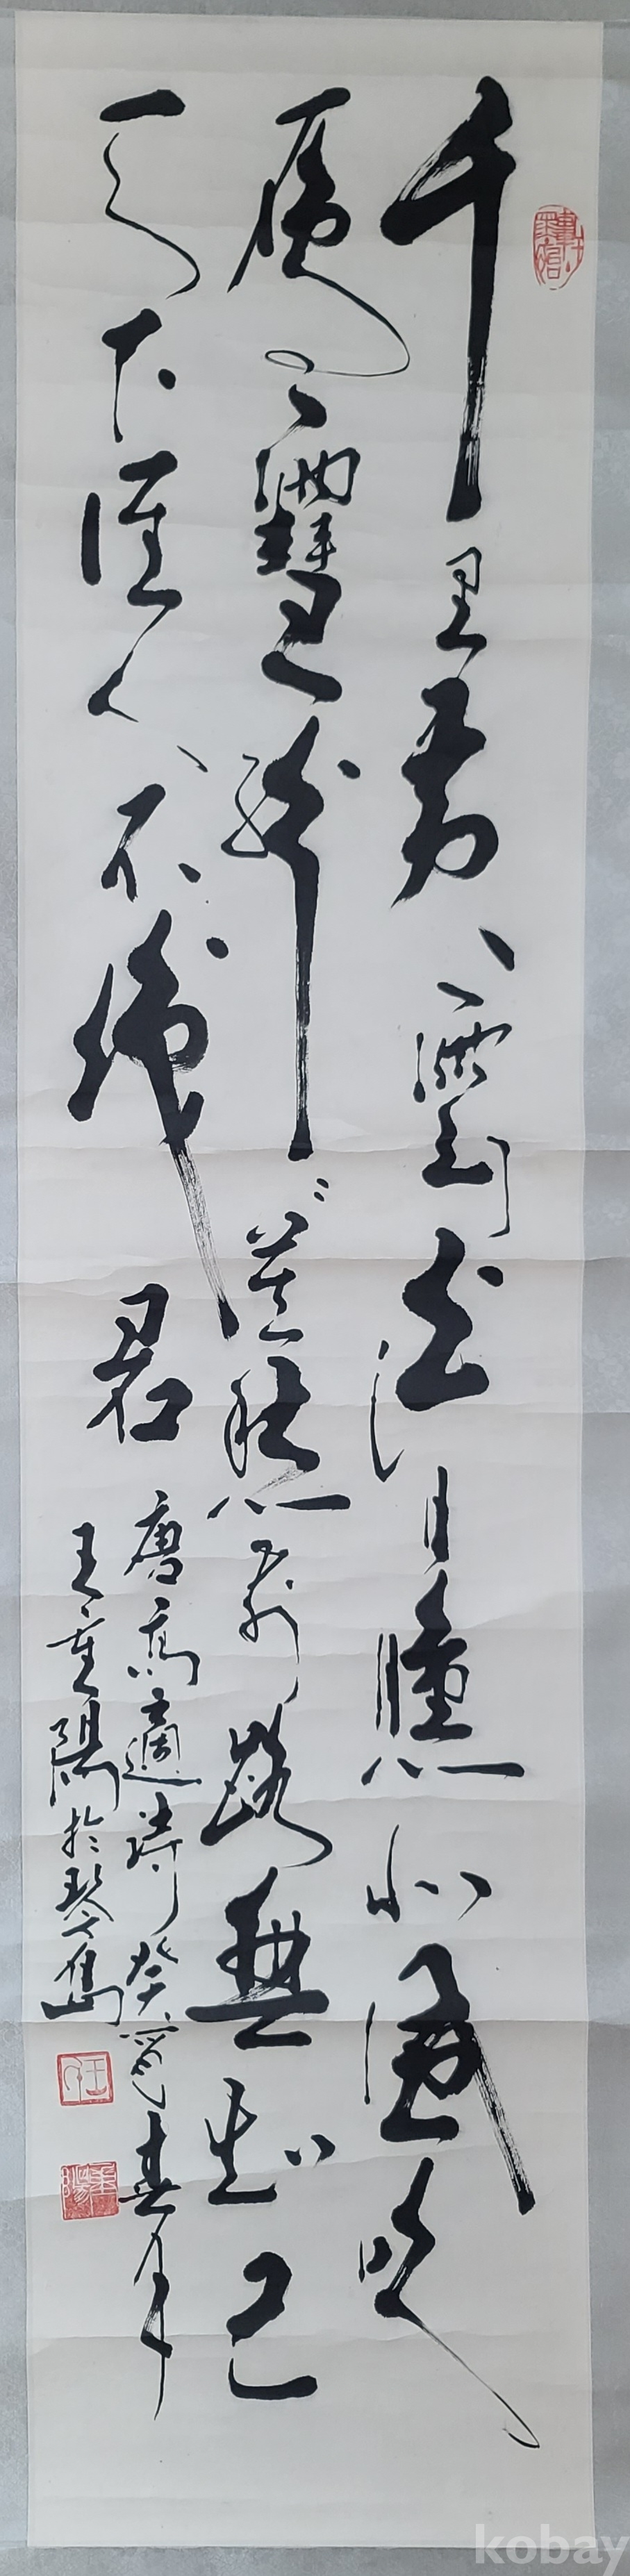 千里黃雲白日曛北風吹
雁雪紛〻莫愁前路無知己
天下誰人不識君
唐高適詩癸酉春
王重陽於琴島
王
重陽
kobay